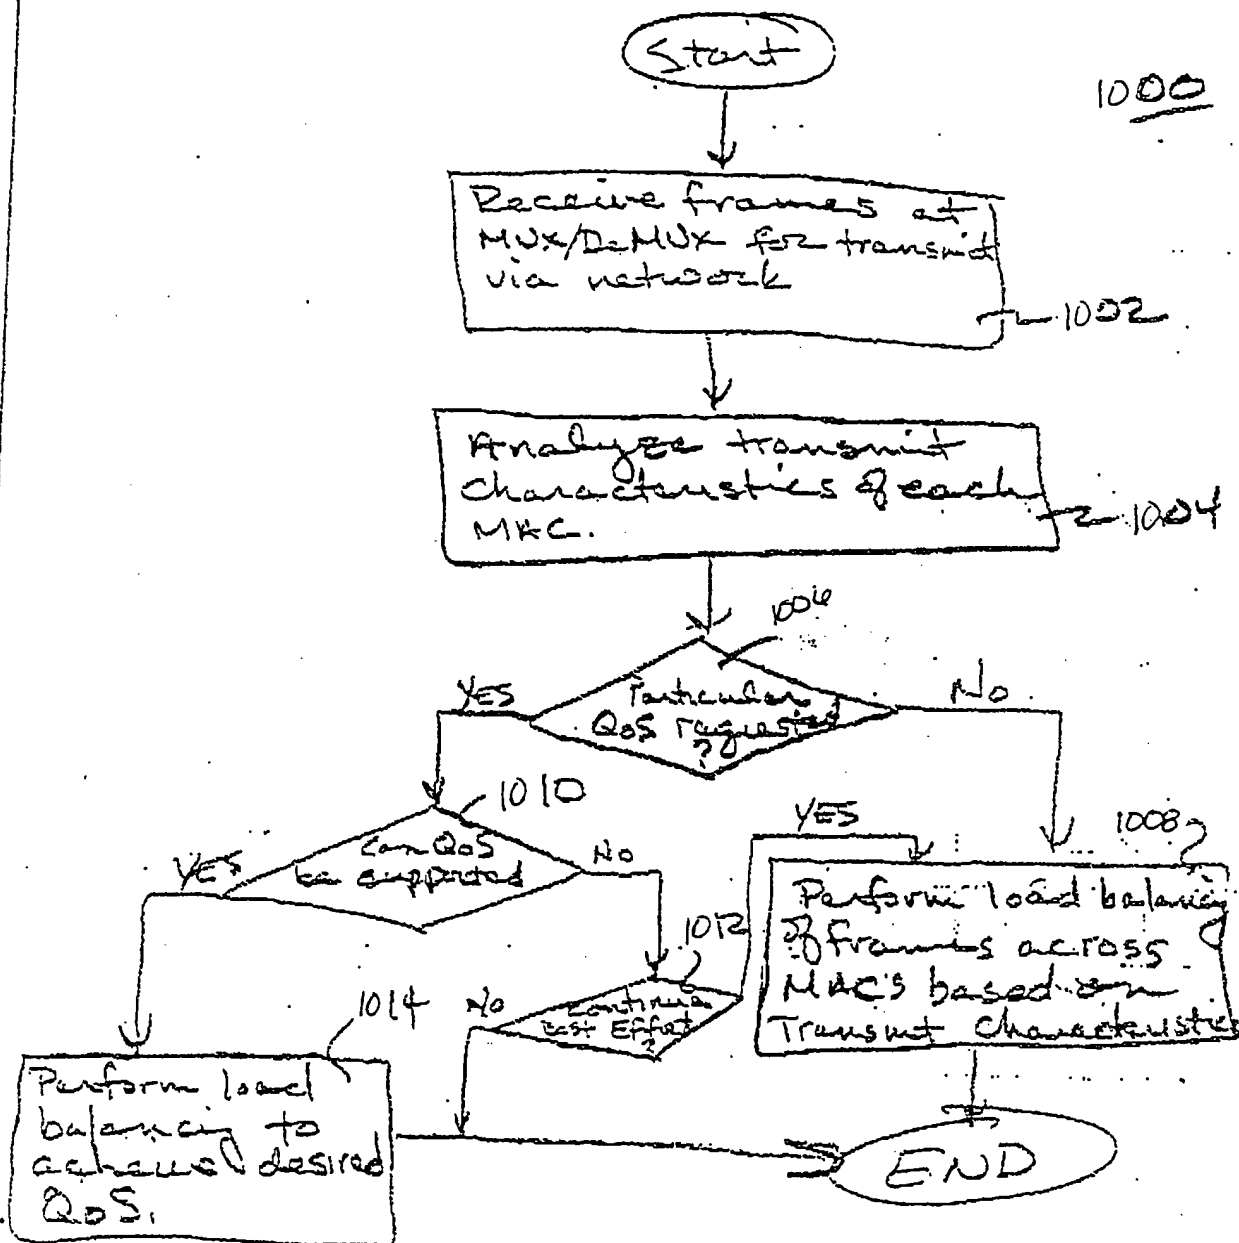 Start
1000
Receive frames at
MUX/DeMUX for transmit
via network
1002
Analyze transmit
characteristics of each
MAC.
1004
1006
Particular
QoS requested
?
YES
No
1010
Can QoS
be supported
YES
No
1012
Continue
Best Effort
?
No
YES
1008
Perform load balancing
of frames across
MAC's based on
Transmit Characteristics
1014
Perform load
balancing to
achieve desired
QoS.
END